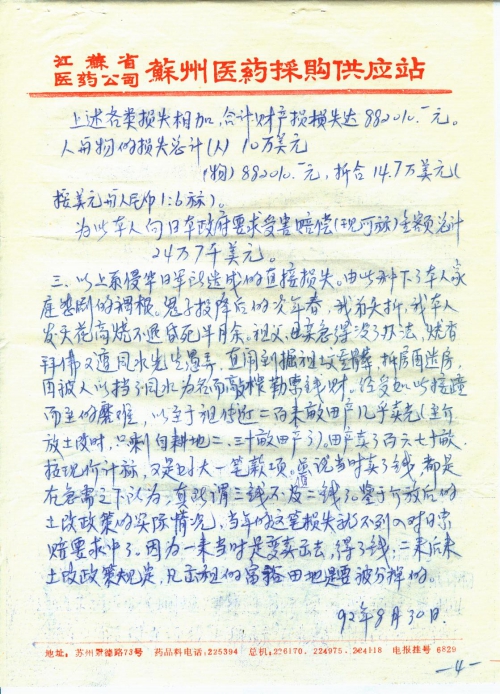 江蘇省
医药公司 蘇州医药採購供应站
上述各类损失相加，合计财产损损失达882010.一元。
人与物的损失总计(人) 10万美元
(物) 882010.一元，折合14.7万美元(
按美元与人民币1:6标)。
为此本人向日本政府要求受害赔偿(现可标)金额总计
24万7千美元。
三、以上系侵华日军造成的直接损失。由此种下了本人家
庭悲剧的祸根。鬼子投降后的次年春，我弟夭折，我本人
发天花高烧不退昏死半月余。祖父、母亲急得没了办法，烧香
拜佛又遭风水先生愚弄，直闹到掘祖坟
再被人以挡了风水为名而敲榨勒票钱财。经受如此接踵
而至的磨难，以至于祖传近二百来敵田产几乎卖光(至解
放土改时，只剩自耕地二、三十敵田产了)。田产卖了百六七十敵，
按现价计标，又是好大一笔款项。虽说当时卖了钱，都是
在急需之下以为，真所谓三钱不值二钱了。鉴于解放后的
土改政策的实际情况，当年的这笔损失我不列入对日索
赔要求中了。因为一来当时是变卖出去，得了钱；二来后来
土改政策规定，凡出租的富裕田地是要被分掉的。
92年8月30日.
地址：苏州景德路73号 药品科电话：225394 总机：226170、224975、224118 电报挂号 6829
—4—